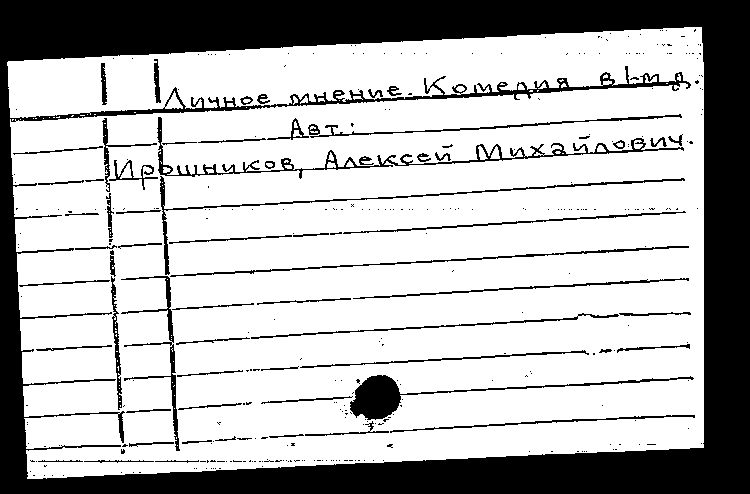 Личное мнение. Комедия в 1-м д.
Авт.:
Ирошников, Алексей Михайлович.